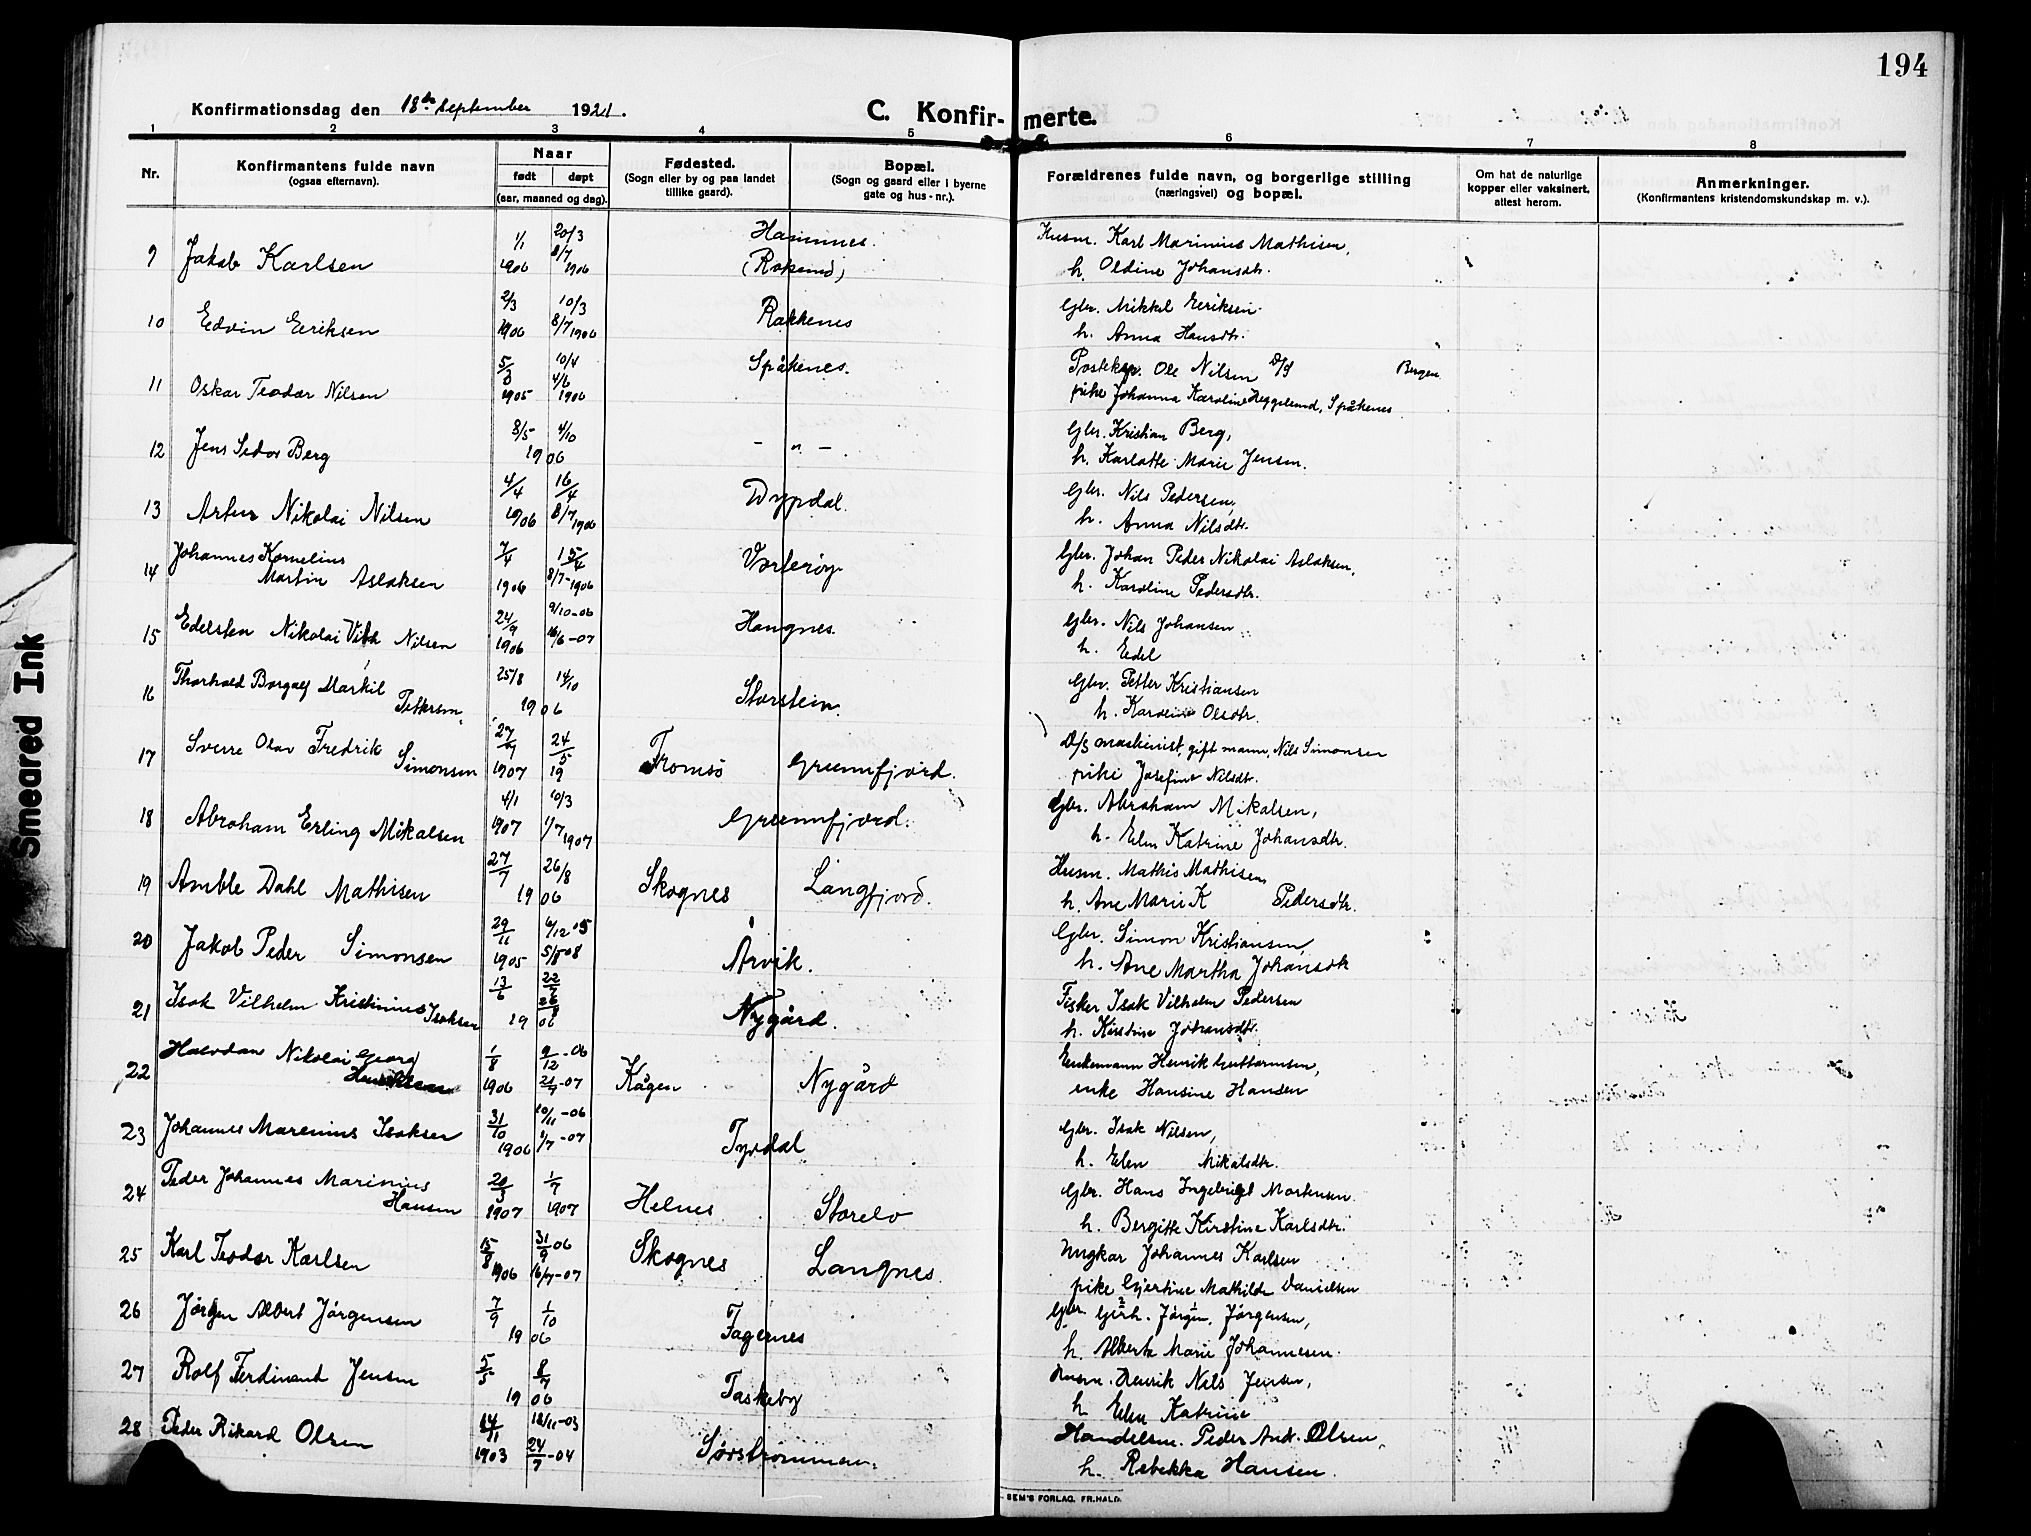 194
Konfirmationsdag den 18de September 1921.
C. Konfirmerte.
1 2 3 4 5 6 7 8
Nr.
Konfirmantens fulde navn
(ogsaa efternavn).
Naar
født døpt
(aar, maaned og dag).
Fødested.
(Sogn eller by og paa landet
tillike gaard).
Bopæl.
(Sogn og gaard eller i byerne
gate og hus-nr.).
Forældrenes fulde navn, og borgerlige stilling
(næringsvei) og bopæl.
Om hat de naturlige
kopper eller vaksinert.
attest herom.
Anmerkninger.
(Konfirmantens kristendomskundskap m. v.).
1/1 20/3 Hamnes. Husm. Karl Marinius Mathisen,
9 Jakob Karlsen 1906 8/7 1906 h. Oldine Johansdtr.
2/3 10/3 Rakkenes Gbr. Mikkel Eeriksen
10 Edvin Eeriksen 1906 8/7 1906 h. Anna Hansdtr.
5/8 10/4 Spåkenes. Ole Nilsen D/S Bergen
11 Oskar Teodor Nilsen 1905 4/6 1906 pike Johanna Karoline Heggelund, Spåkenes
8/5 4/10 - " - Gbr. Kristian Berg,
12 Jens Sedor Berg 1906 h. Karlotte Marie Jensen.
4/4 16/4 Dypdal. Gbr. Nils Pedersen,
13 Artur Nikolai Nilsen 1906 8/7 1906 h. Anna Nilsdtr.
Johannes Kornelius 7/4 15/4 Vorterøy Gbr. Johan Peder Nikolai Aslaksen,
14 Martin Aslaksen 1906 8/7-1906 h. Karoline Pedersdtr.
24/9 9/10-06 Haugnes. Gbr. Nils Johansen
15 Edelsten Nikolai Nilsen 1906 16/6-07 h. Edel
Thorhold Borgalf Markil 25/8 14/10 Storstein. Gbr. Petter Kristiansen
16 Pettersen. 1906 h. Karoline Olsdtr.
Sverre Olav Fredrik 24/5 D/S maskinist, gift mann, Nils Simonsen
17 Simonsen 1907 19 Tromsø Grunnfjord. pike Josefine Nilsdtr.
4/1 10/3 Grunnfjord. Gbr. Abraham Mikalsen,
18 Abraham Erling Mikalsen 1907 1/7 1907 h. Elen Katrine Johansdtr.
27/7 26/8 Husm. Mathis Mathisen
19 Amble Dahl Mathisen 1906 Skognes Langfjord. h. Ane Marie K Pedersdtr.
29/11 6/12 05 Gbr. Simon Kristiansen,
20 Jakob Peder Simonsen 1905 5/8-08 Årvik. h. Ane Martha Johansdtr
13/6 22/7 Fisker Isak Vilhelm Pedersen
21 Isak Vilhelm Kristinius Isaksen 26/8 1906 Nygård. h. Kirstine Johansdtr.
Halvdan Nikolai Georg 1/8 9/12-06 Enkemann Henrik Guttormsen,
22 Henriksen 1906 21/7-07 Kågen Nygård enke Hansine Hansen
31/10 10/11-06 Gbr. Isak Nilsen,
23 Johannes Marenius Isaksen 1906 1/7-07 Tyvdal h. Elen Mikalsdtr.
Peder Johannes Marinius 20/3 1/7 Gbr. Hans Ingebrigt Mortensen.
24 Hansen 1907 1907 Helnes Storelv h. Bergitte Kirstine Karlsdtr.
15/8 31/9 06 Ungkar Johannes Karlsen
25 Karl Teodor Karlsen 1906 16/7-07 Skognes Langnes. pike Gjertine Mathilde Danielsen
7/9 1/10 Gbr. Gerh. Jørgen. Jørgensen,
26 Jørgen Albert Jørgensen 1906 Fagernes h. Alberte Marie Johannesen.
5/5 8/7 Husm. Henrik Nils Jensen,
27 Rolf Ferdinand Jensen 1906 Taskeby h. Elen Katrine
14/1 18/11-03 Handelsm. Peder Andr. Olsen,
28 Peder Rikard Olsen 1903 24/7-04 Sørstrømmen. h. Rebekka Hansen.
SEM'S FORLAG. FR.HALD.
Smeared Ink